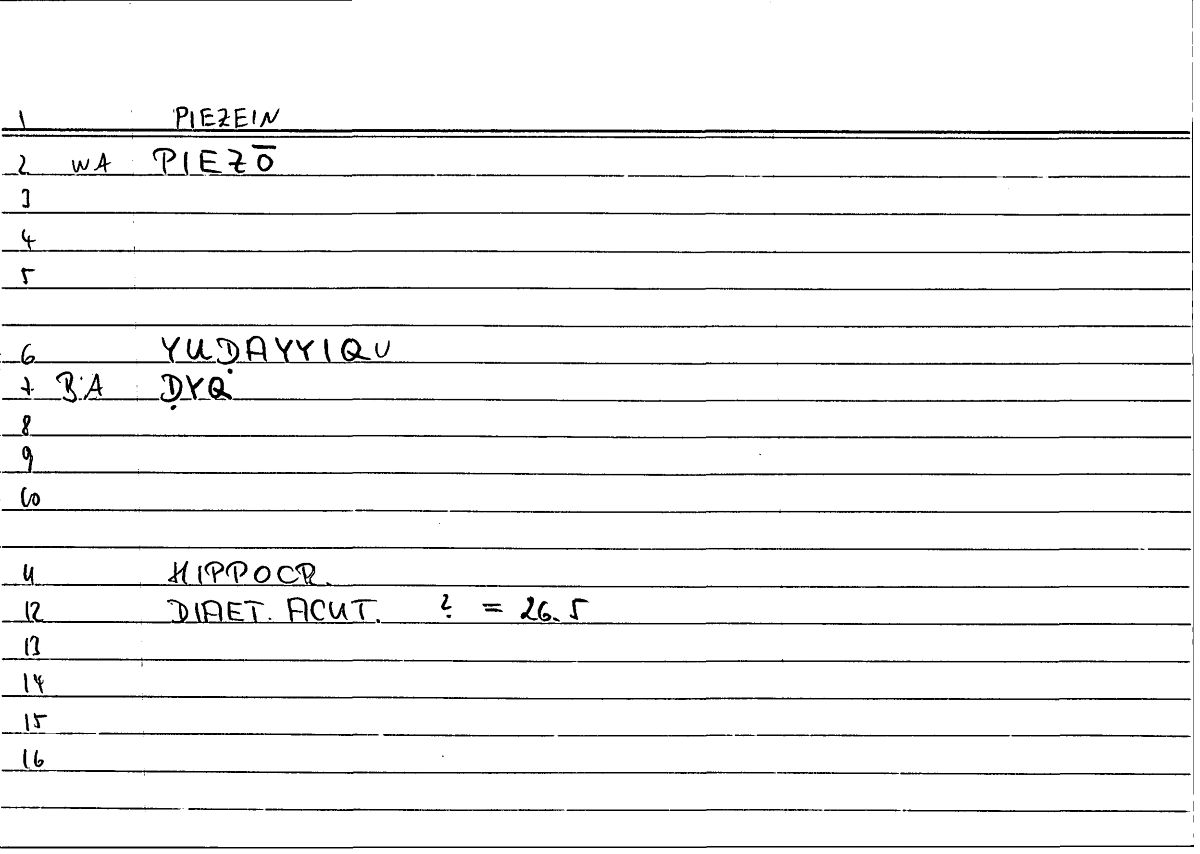 1 PIEZEIN
2 WA PIEZŌ
3
4
5
6 YUḌAYYIQU
7 BA ḌYQ
8
9
10
11 HIPPOCR.
12 DIAET. ACUT. ? = 26.5
13
14
15
16